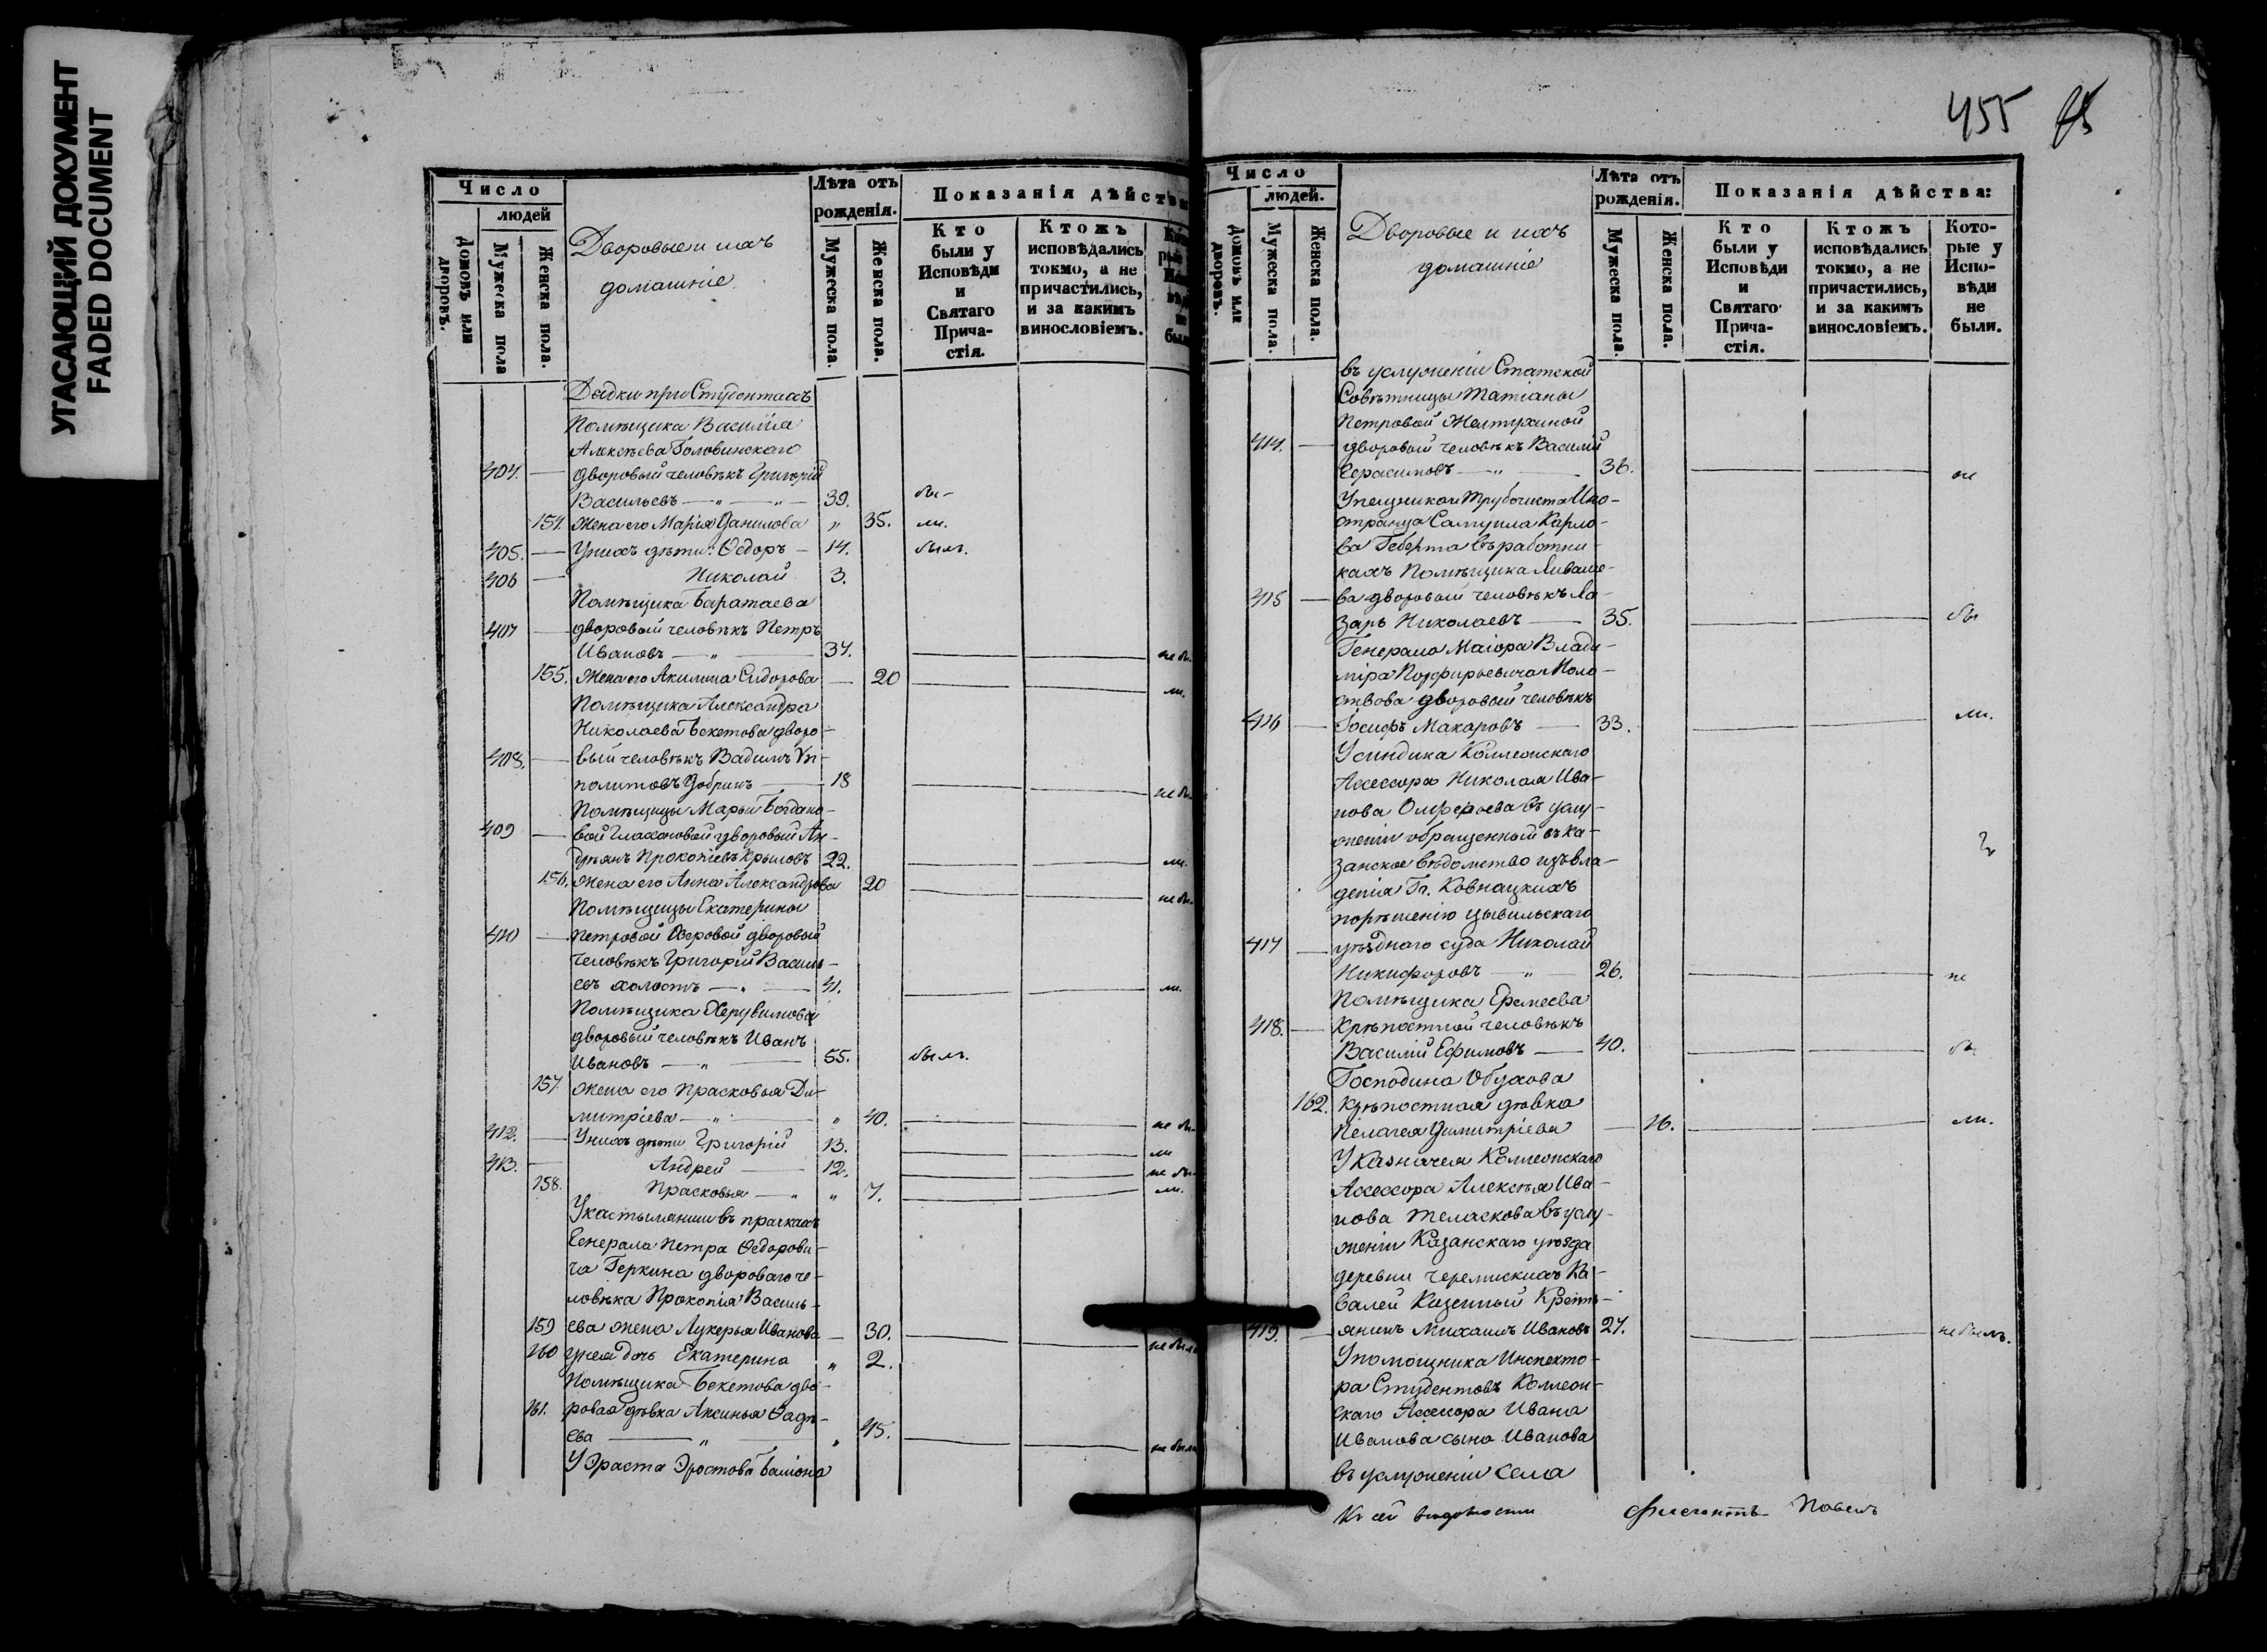 УГАСАЮЩИЙ ДОКУМЕНТ
FADED DOCUMENT
Число
людей
Домовъ или дворовъ.
Мужеска пола
Женска пола.
Дворовые и ихъ
домашніе.
Лѣта отъ
рожденія.
Мужеска пола.
Женска пола.
Показанія дѣйст
Кто
были у
Исповѣди
и
Святаго
Прича-
стія.
Ктожъ
исповѣдались
токмо, а не
причастились,
и за какимъ
винословіемъ.
Дядки при Студентахъ
Помѣщика Василія
Алексѣева Головинскаго
404. — дворовый человѣкъ Григорій
Васильевъ — „ — „ — 39. бы-
154. Жена его Марія Данилова „ 35. ли.
405. — У нихъ дѣти: Ѳедоръ — 14. былъ.
406 — Николай 3.
Помѣщика Баратаева
407 — дворовый человѣкъ Петръ
Ивановъ — „ — 34. не бы-
155. Жена его Акилина Сидорова — 20 ли.
Помѣщика Александра
Николаева Бекетова дворо-
408. — вый человѣкъ Вадимъ Ип-
политовъ Добринъ — 18 не бы-
Помѣщицы Марьи Богдано-
409 — вой дворовый Ан-
дреянъ Прокопіевъ Крыловъ 22. ли.
156. Жена его Анна Александрова 20 не бы-
Помѣщицы Екатерины
410 — Петровой Озеровой дворовый
человѣкъ Григорій Василь-
евъ холостъ — „ — 41. ли.
Помѣщика Херувимова
дворовый человѣкъ Иванъ
Ивановъ — „ — 55. былъ.
157. Жена его Прасковья Ди-
митріева — „ „ 40. не бы-
412. — У нихъ дѣти Григорій 13. ли
413. — Андрей — 12. не бы-
158. Прасковья — „ „ 7. ли.
У кастелянши въ прачкахъ
Генерала Петра Ѳедорови-
ча Геркина двороваго че-
ловѣка Прокопія Василь-
159 ева жена Лукерья Иванова — 30. не была
160 у нея дочь Екатерина „ 2.
Помѣщика Бекетова дво-
161. ровая дѣвка Аксинья Ѳадѣ-
ева — „ — „ 45. не была
У Эраста Эрастова
455
Число
людей.
Домовъ или дворовъ.
Мужеска пола.
Женска пола.
Дворовые и ихъ
домашніе
Лѣта отъ
рожденія.
Мужеска пола.
Женска пола.
Показанія дѣйства:
Кто
были у
Исповѣди
и
Святаго
Прича-
стія.
Ктожъ
исповѣдались
токмо, а не
причастились,
и за какимъ
винословіемъ.
Кото-
рые у
Испо-
вѣди
не
были.
въ услуженіи Статской
Совѣтницы Татіаны
Петровой Желтухиной
414. — дворовый человѣкъ Василій
Герасимовъ — „ — 36. не
Упечника и Трубочиста Ино-
странца Самуила Карло-
ва Геберта въ работни-
кахъ Помѣщика Ливаше-
415 — ва дворовый человѣкъ Ла-
зарь Николаевъ — 35. бы
Генерала Маіора Влади-
міра Порфирьевича Моло-
ствова дворовый человѣкъ
416 — Іосифъ Макаровъ — 33. ли.
У синдика Коллежскаго
Ассессора Николая Ива-
нова Алферьева въ услу-
женіи обращенный въ Ка-
занское вѣдомство изъ вла-
денія Гг. Ковнацкихъ
по рѣшенію Цывильскаго
417 — уѣзднаго суда Николай
Никифоровъ — „ — 26. не
Помѣщика Еремеева
418. — Крѣпостной человѣкъ
Василій Ефимовъ — 40. бы
Господина Обухова
162. Крѣпостная дѣвка
Пелагея Димитріева — 16. ли.
У Казначея Коллежскаго
Ассессора Алексѣя Ива-
нова въ услу-
женіи Казанскаго уѣзда
деревни Черемискихъ Ка-
валей Казенный Крестья-
419. — янинъ Михаилъ Ивановъ 27. не былъ.
У помощника Инспекто-
ра Студентовъ Коллеж-
скаго Ассессора Ивана
Иванова сына Иванова
въ услуженіи села
Къ сей вѣдомости Павелъ